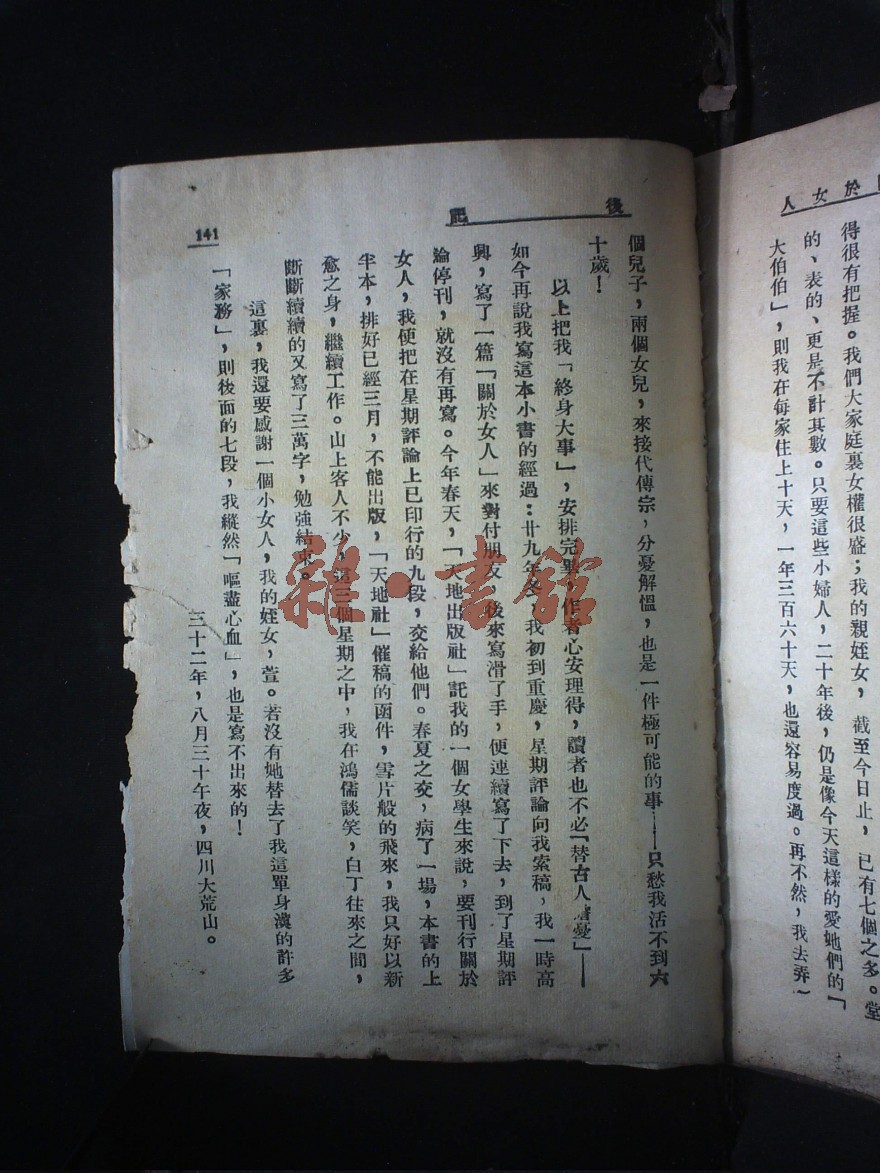 於女人
得很有把握。我們大家庭裏女權很盛；我的親姪女，截至今日止，已有七個之多。堂
的、表的、更是不計其數。只要這些小婦人，二十年後，仍是像今天這樣的愛她們的「
大伯伯」，則我在每家住上十天，一年三百六十天，也還容易度過。再不然，我去弄一
後記
個兒子，兩個女兒，來接代傳宗，分憂解慍，也是一件極可能的事——只愁我活不到六
十歲！
以上把我「終身大事」，安排完畢，作者心安理得，讀者也不必「替古人擔憂」——
如今再說我寫這本小書的經過：廿九年冬，我初到重慶，星期評論向我索稿，我一時高
興，寫了一篇「關於女人」來對付朋友，後來寫滑了手，便連續寫了下去，到了星期評
論停刊，就沒有再寫。今年春天，「天地出版社」託我的一個女學生來說，要刊行關於
女人，我便把在星期評論上已印行的九段，交給他們。春夏之交，病了一場，本書的上
半本，排好已經三月，不能出版，「天地社」催稿的函件，雪片般的飛來，我只好以新
愈之身，繼續工作。山上客人不少，這三個星期之中，我在鴻儒談笑，白丁往來之間，
斷斷續續的又寫了三萬字，勉強結束。
這裏，我還要感謝一個小女人，我的姪女，萱。若沒有她替去了我這單身漢的許多
「家務」，則後面的七段，我縱然「嘔盡心血」，也是寫不出來的！
三十二年，八月三十午夜，四川大荒山。
141
雜·書館